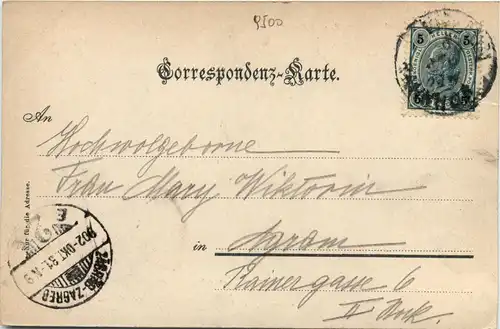 9500
Correspondenz-Karte.
5 5
An
Hochwolgeborne
Frau Mary Wiktorin
in Agram
Rainergasse 6
II Stock
Nur für die Adresse.
ZÁGRÁB-ZAGREB
902·OKT 31